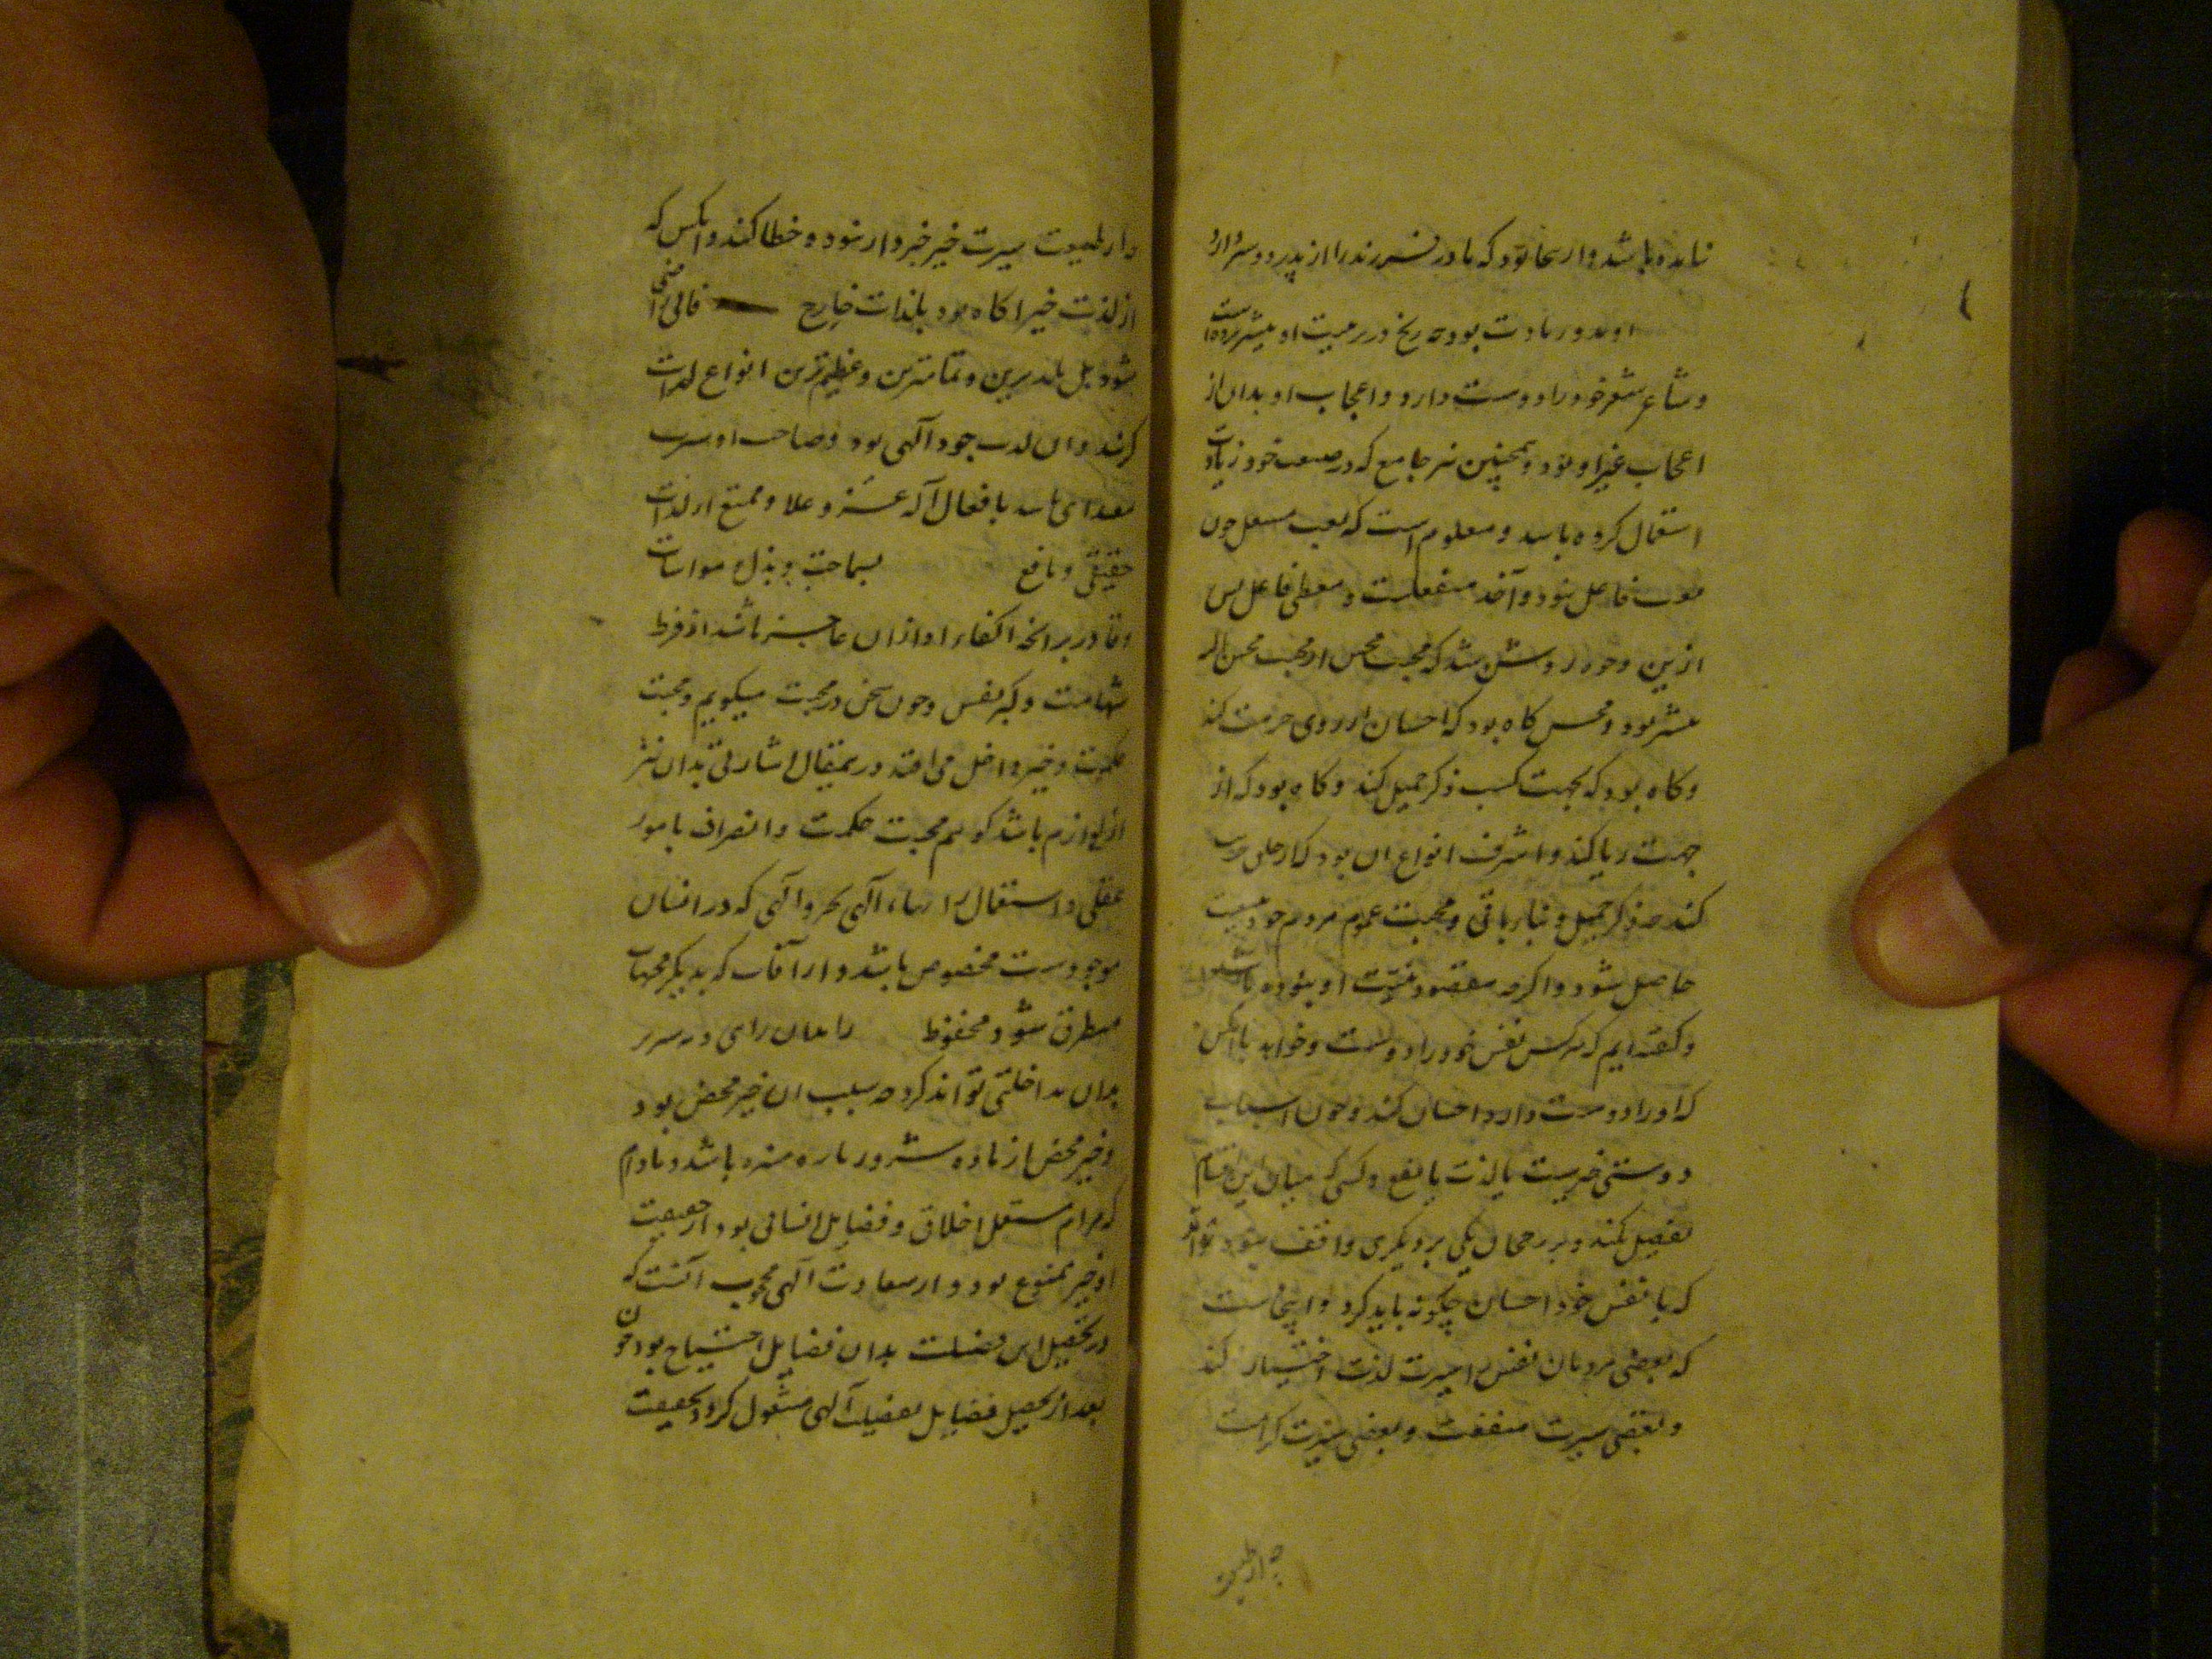 نامده باشد و از اینجا بود که مادر فرزند را از پدر دوستر دارد
او در زیادت بود چه رنج در تربیت او بیشتر برده است
و شاعر شعر خود را دوست دارد و اعجاب او بدان از
اعجاب غیر او بود و همچنین هر جامع که در صنعت خود زیادت
استعمال کرده باشد و معلوم است که تعب منفعل چون
تعب فاعل نبود و آخذ منفعلست و معطی فاعل پس
ازین وجوه روشن شد که محبت محسن از محبت محسن الیه
بیشتر بود و محسن کاه بود که احسان از روی حریت کند
و کاه بود که بجهت کسب ذکر جمیل کند و کاه بود که از
جهت ریا کند و اشرف انواع ان بود که از خلق حریت
کند چه ذکر جمیل و ثناء باقی و محبت عموم مردم خود بتبعیت
حاصل شود و اکرچه مقصود نیت او نبوده باشد
و کفته ایم که هر کس نفس خود را دوست و خواهد با انکس
که او را دوست دارد احسان کند و چون اسباب
دوستی خیرست یا لذت یا نفع و کسی که میان این اقسام
تفصیل نکند و بر رجحان یکی بر دیکری واقف نبود نداند
که با نفس خود احسان چکونه باید کرد و اینجاست
که بعضی مردمان نفس را سیرت لذت اختیار کند
و بعضی سیرت منفعت و بعضی سیرت کرامت
چه از طبیعت
چه از طبیعت سیرت خیر خبردار نبود و خطا کند و انکس که
از لذت خیر اکاه بود بلذات خارج فانی راضی
نشود بل بلندترین و تمامترین و عظیم‌ترین انواع لذات
کزیند و ان لذت جزو الهی بود و صاحب او سیرت
مقتدی باشد بافعال آله عز و علا و متمتع از لذات
حقیقی و نافع بسماحت و بذل و مواسات
و قادر بر انچه اکفاء او از ان عاجز باشد از فرط
شهامت و کبر نفس و چون سخن در محبت میکوییم و محبت
حکمت و خیر داخل می افتد در نمقال اشارتی بدان نیز
از لوازم باشد کوییم محبت حکمت و انصراف بامور
عقلی و استعمال رایهاء الهی بجزو الهی که در انسان
موجودست مخصوص باشد و از آفات که بدیکر محبات
متطرق شود محفوظ را بدان راهی و نه شریر
بدان مداخلتی تواند کرد چه سبب ان خیر محض بود
و خیر محض از ماده و شرور ماده منزه باشد و مادام
که مردم مستعمل اخلاق و فضایل انسانی بود از حقیقت
ان خیر ممنوع بود و از سعادت الهی محجوب الا انست که
در تحصیل این فضیلت بدان فضایل احتیاج بود و چون
بعد از تحصیل فضایل بفضیلت الهی مشغول کردد بحقیقت